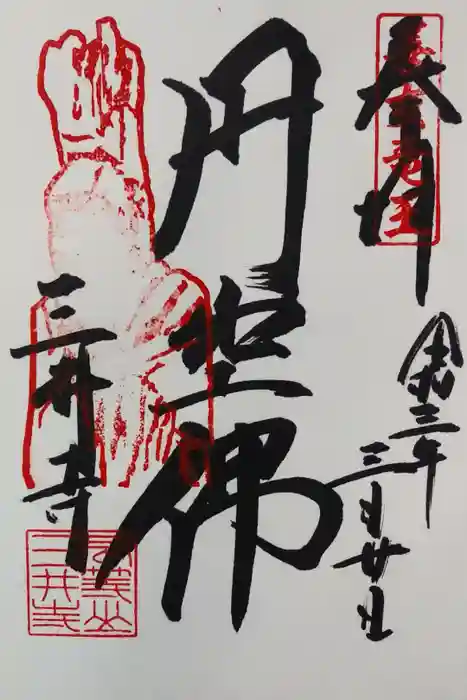 奉拝
善女竜王
令和三年
三月廿日
円空佛
三井寺
長等山
三井寺